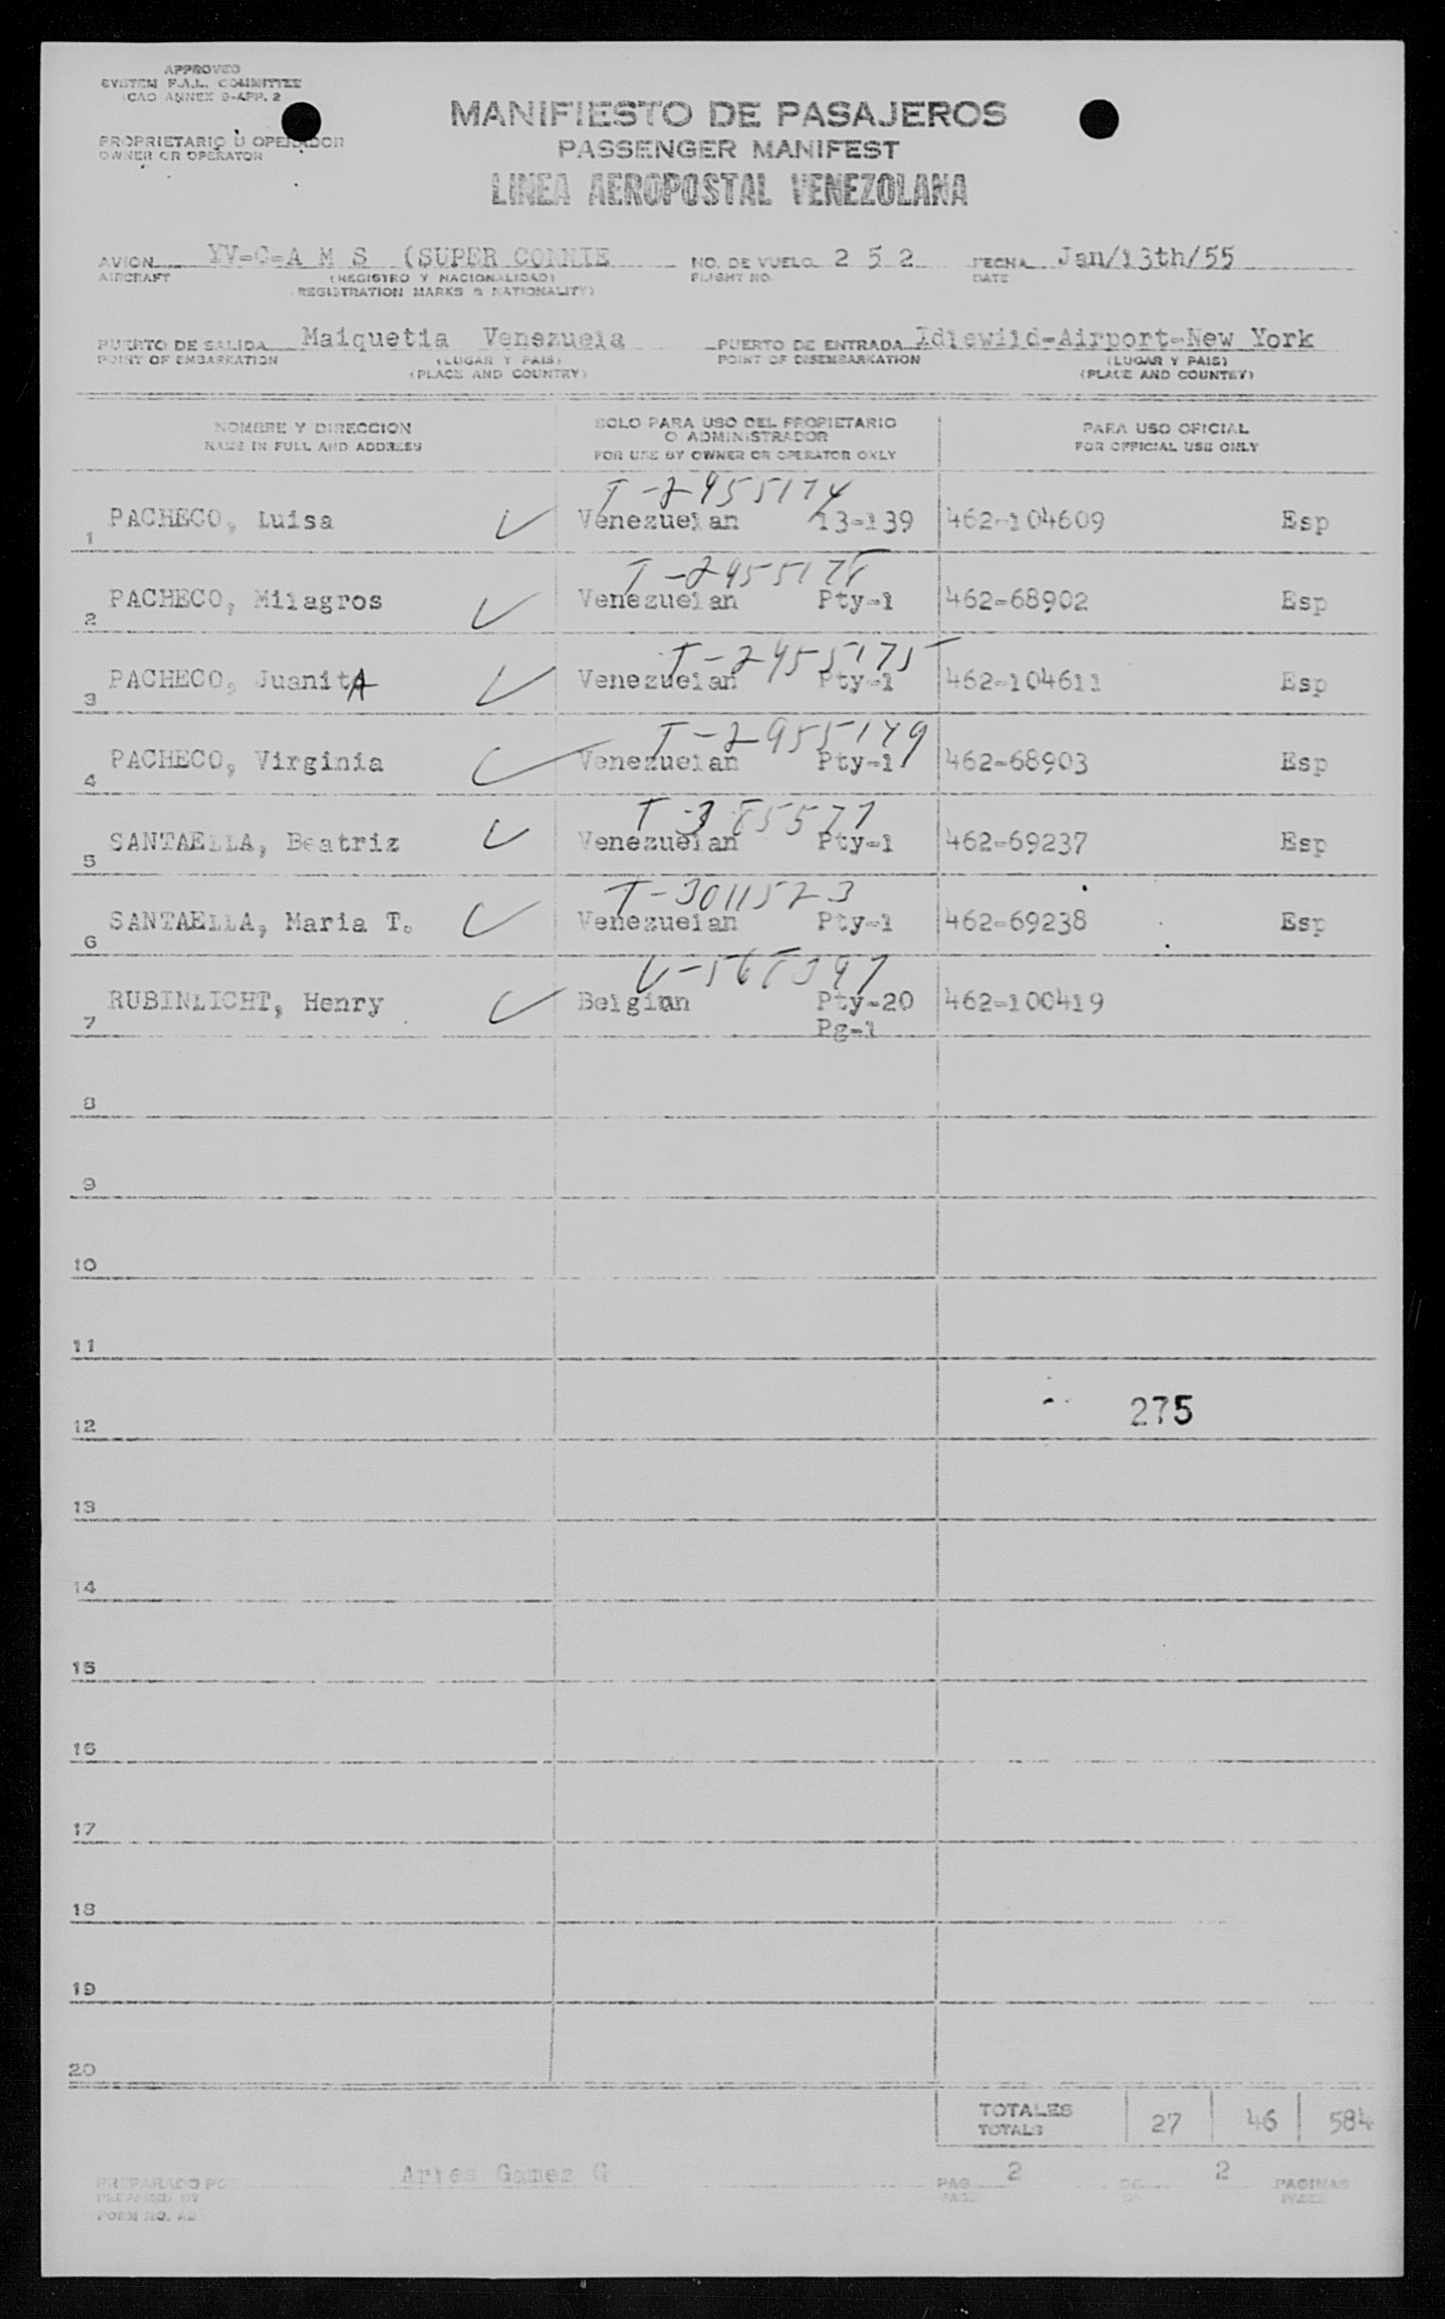 APPROVED
SYSTEM F.A.L. COMMITTEE
ICAO ANNEX 9-APP. 2
MANIFIESTO DE PASAJEROS
PROPRIETARIO U OPERADOR
OWNER OR OPERATOR
PASSENGER MANIFEST
LINEA AEROPOSTAL VENEZOLANA
AVION YV-C-A M S (SUPER CONNIE NO. DE VUELO 2 5 2 FECHA Jan/13th/55
AIRCRAFT (REGISTRO Y NACIONALIDAD) FLIGHT NO. DATE
(REGISTRATION MARKS & NATIONALITY)
PUERTO DE SALIDA Maiquetia Venezuela PUERTO DE ENTRADA Idlewild-Airport-New York
POINT OF EMBARKATION (LUGAR Y PAIS) POINT OF DISEMBARKATION (LUGAR Y PAIS)
(PLACE AND COUNTRY) (PLACE AND COUNTRY)
NOMBRE Y DIRECCION SOLO PARA USO DEL PROPIETARIO O ADMINISTRADOR PARA USO OFICIAL
NAME IN FULL AND ADDRESS FOR USE BY OWNER OR OPERATOR ONLY FOR OFFICIAL USE ONLY
T-2955174
1 PACHECO, Luisa Venezuelan 13-139 462-104609 Esp
T-2955178
2 PACHECO, Milagros Venezuelan Pty-1 462-68902 Esp
T-2955175
3 PACHECO, JuanitA Venezuelan Pty-1 462-104611 Esp
T-2955179
4 PACHECO, Virginia Venezuelan Pty-1 462-68903 Esp
5 SANTAELLA, Beatriz Venezuelan Pty-1 462-69237 Esp
T-3011523
6 SANTAELLA, Maria T. Venezuelan Pty-1 462-69238 Esp
7 RUBINLICHT, Henry Belgian Pty-20 462-100419
Pg-1
8
9
10
11
275
12
13
14
15
16
17
18
19
20
TOTALES 27 46 584
TOTALS
PREPARADO POR Artes Gamez G PAG. 2 DE 2 PAGINAS
PREPARED BY PAGE OF PAGES
FORM NO. A2